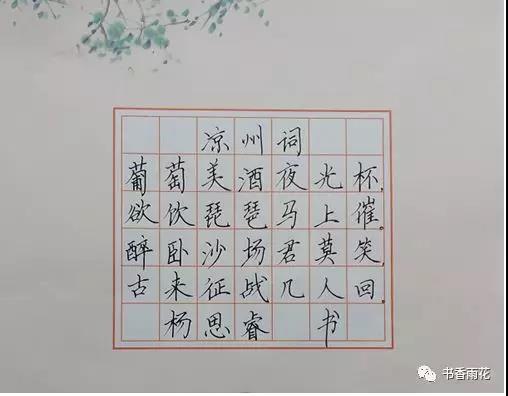 凉州词
葡萄美酒夜光杯,
欲饮琵琶马上催。
醉卧沙场君莫笑,
古来征战几人回.
杨思睿 书
书香雨花